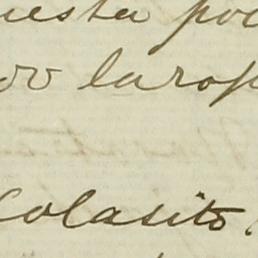 uesta poc
do la rop
Colasito.